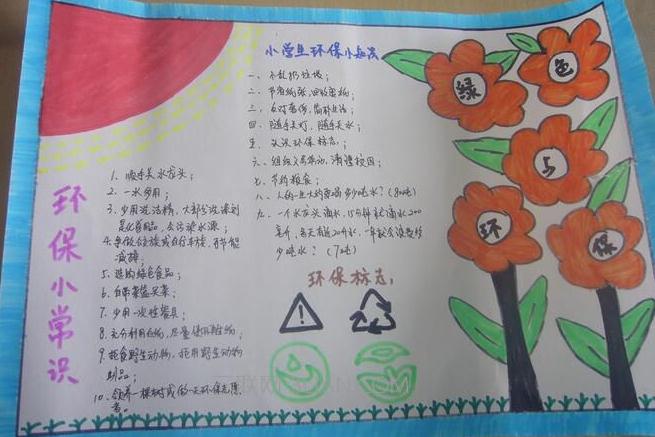 小学生环保小知识
一、不乱扔垃圾；
二、节省纸张，回收废纸；
三、反对奢侈，简朴生活；
四、随手关灯，随手关水；
五、认识环保标志；
六、组织义务劳动，清洁校园；
七、节约粮食；
八、人的一生大约要喝多少吨水？(80吨)
九、一个水龙头滴水，15分钟就滴水200
毫升，每天有近20升水，一年就会浪费
少吨水？(7吨)
环保标志：
环保小常识
1. 顺手关水龙头；
2. 一水多用；
3. 少用洗洁精，大部分洗涤剂
是化学品，会污染水源；
4. 乘
减排；
5. 选购绿色食品；
6. 自带菜篮买菜；
7. 少用一次性餐具；
8. 充分利用白纸，尽量使用再生纸；
9. 拒食野生动物，拒用野生动物
制品；
10. 领养一棵树或做一天环保志愿
者。
绿
色
与
环
保